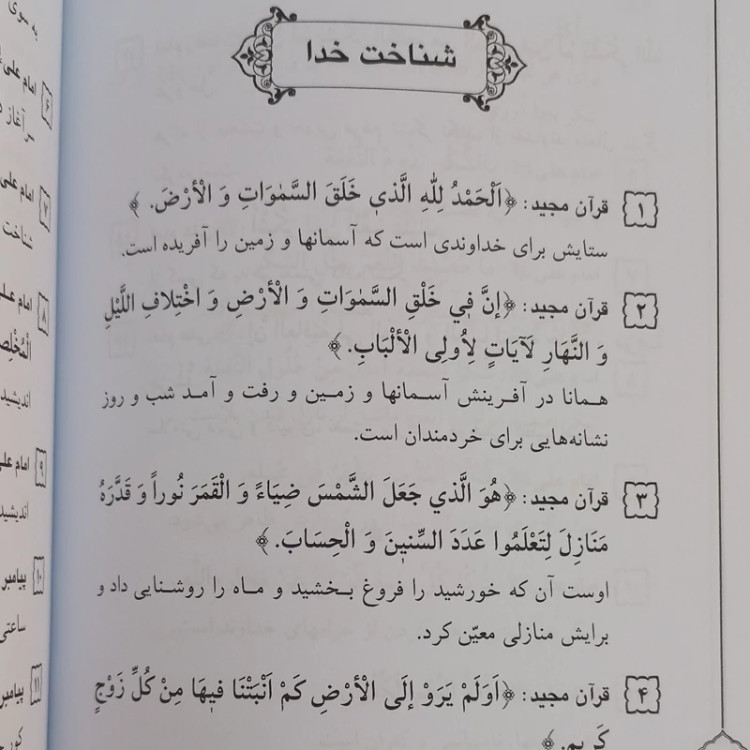 شناخت خدا
۱ قرآن مجید: ﴿اَلْحَمْدُ لِلّٰهِ الَّذي خَلَقَ السَّمٰوَاتِ وَ الْأَرْضَ.﴾
ستایش برای خداوندی است که آسمانها و زمین را آفریده است.
۲ قرآن مجید: ﴿إنَّ فِي خَلْقِ السَّمٰوَاتِ وَ الْأَرْضِ وَ اخْتِلافِ اللَّیْلِ
وَ النَّهَارِ لَآيَاتٍ لِأُولِی الْأَلْبَابِ.﴾
همانا در آفرینش آسمانها و زمین و رفت و آمد شب و روز
نشانه‌هایی برای خردمندان است.
۳ قرآن مجید: ﴿هُوَ الَّذي جَعَلَ الشَّمْسَ ضِیَاءً وَ الْقَمَرَ نُوراً وَ قَدَّرَهُ
مَنَازِلَ لِتَعْلَمُوا عَدَدَ السِّنینَ وَ الْحِسَابَ.﴾
اوست آن که خورشید را فروغ بخشید و ماه را روشنایی داد و
برایش منازلی معیّن کرد.
۴ قرآن مجید: ﴿اَوَلَمْ یَرَوْ إلَی الْأَرْضِ کَمْ اَنْبَتْنَا فیهَا مِنْ کُلِّ زَوْجٍ
کَریمٍ.﴾
به سوی
۶ امام علی
سرآغاز
۷ امام علی
شناخت
۸ امام علی
اندیشید
۹ امام علی
اندیشید
۱۰ پیامبر
ساعتی
۱۱ پیامبر